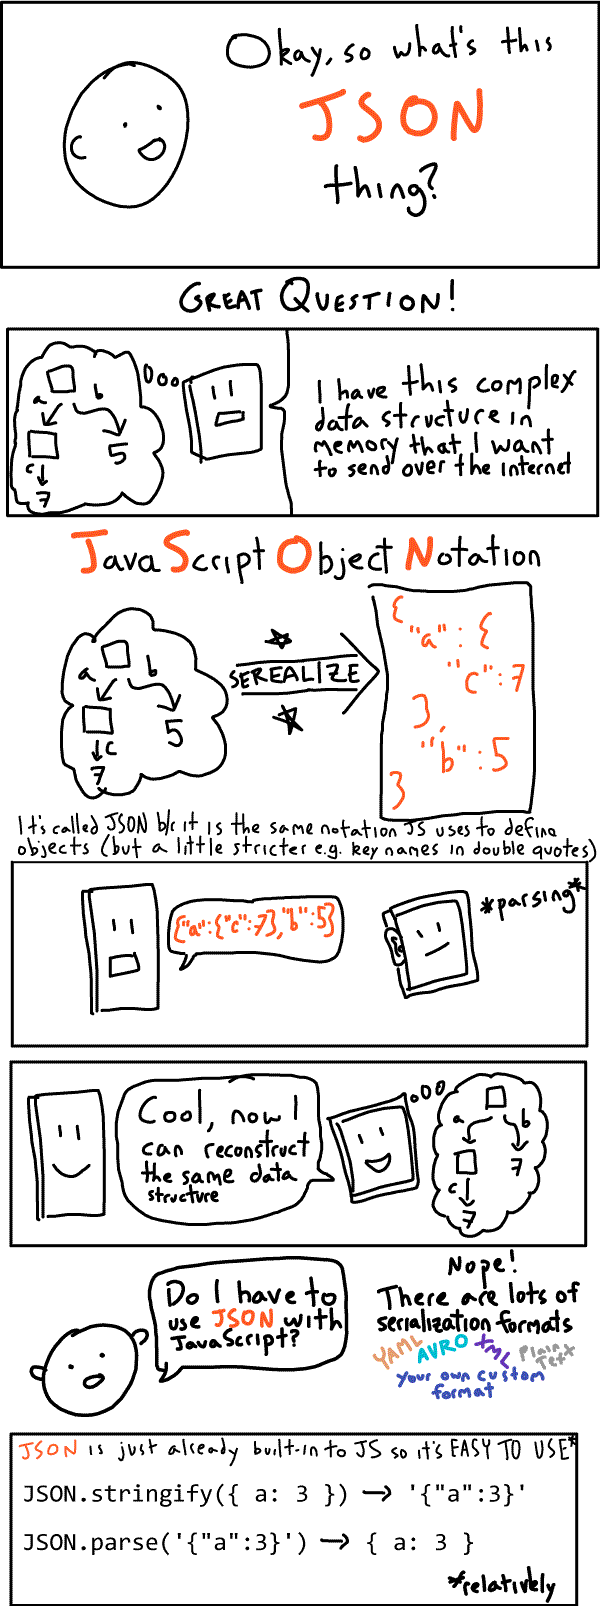 Okay, so what's this
JSON
thing?
GREAT QUESTION!
a b
5
c
7
I have this complex
data structure in
memory that I want
to send over the internet
JavaScript Object Notation
a b
5
c
7
SEREALIZE
{
"a": {
"c": 7
},
"b": 5
}
It's called JSON b/c it is the same notation JS uses to define
objects (but a little stricter e.g. key names in double quotes)
{"a":{"c":7},"b":5}
*parsing*
Cool, now I
can reconstruct
the same data
structure
a b
7
c
7
Do I have to
use JSON with
JavaScript?
Nope!
There are lots of
serialization formats
YAML AVRO XML Plain Text
your own custom
format
JSON is just already built-in to JS so it's EASY TO USE*
JSON.stringify({ a: 3 }) → '{"a":3}'
JSON.parse('{"a":3}') → { a: 3 }
*relatively